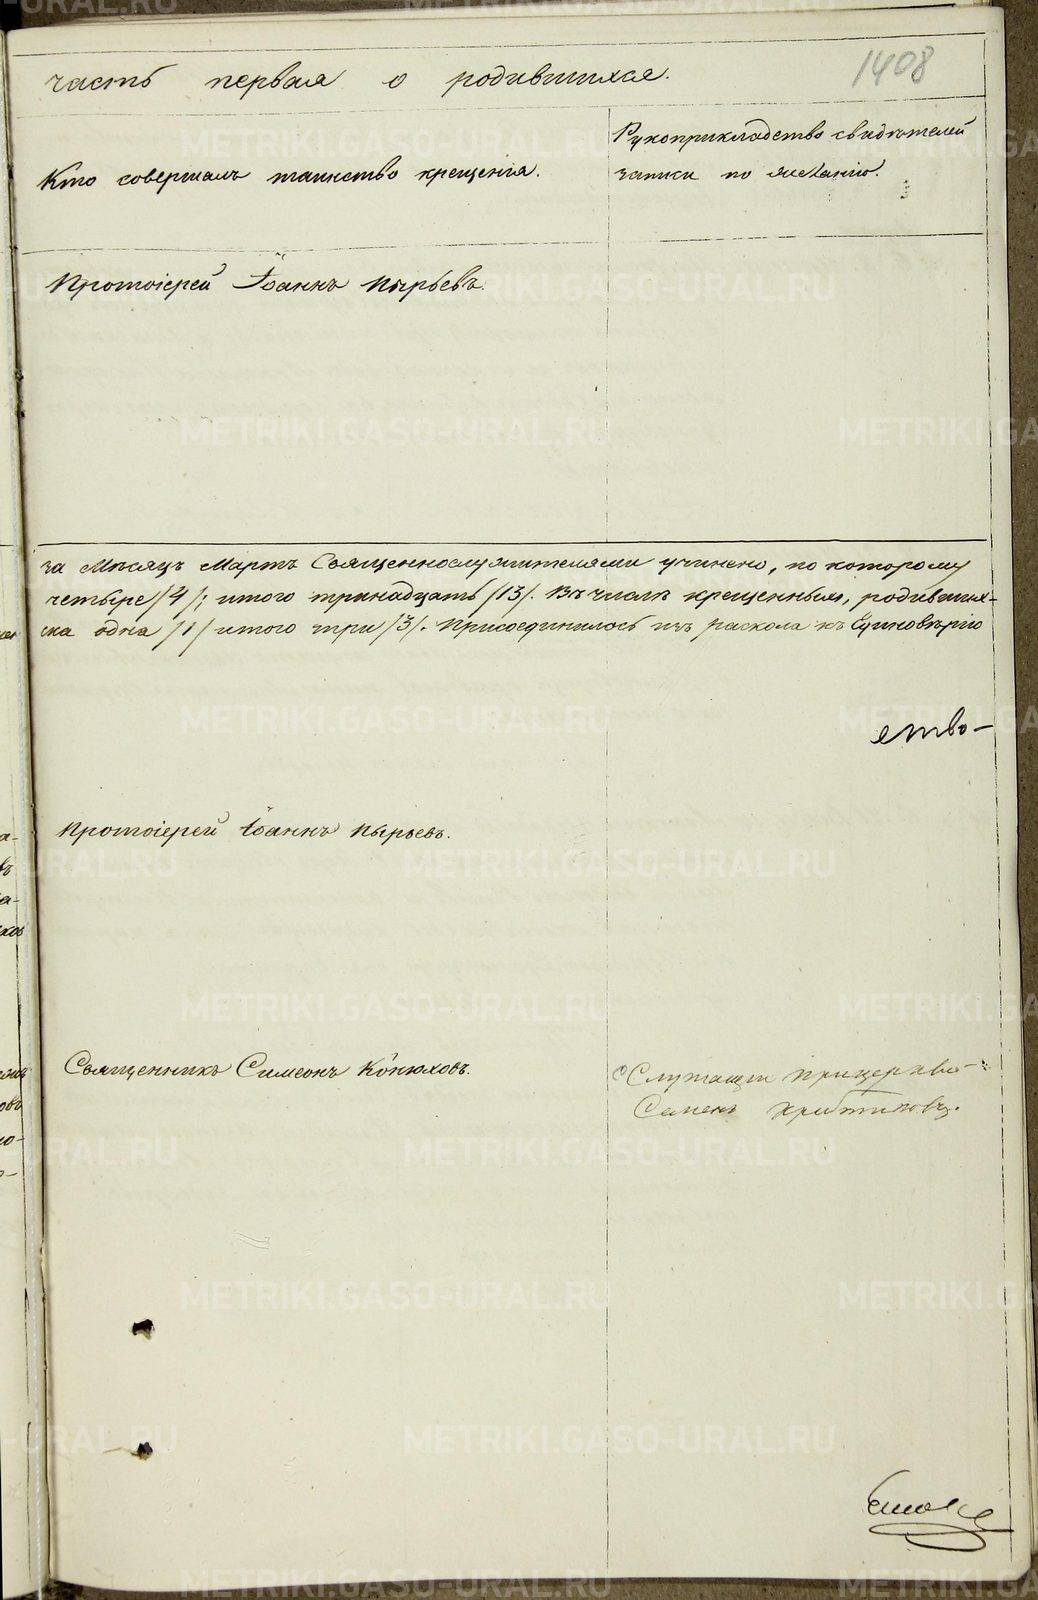 часть первая о родившихся.
1408
Кто совершалъ таинство крещенія.
Рукоприкладство свидѣтелей
записи по желанію.
Протоіерей Іоаннъ Пырьевъ.
за Мѣсяцъ Мартъ Священнослужителями учинено, по которому
четыре /4/; итого тринадцать /13/. Въ числѣ крещенныхъ, родивших-
ска одна /1/ итого три /3/. Присоединилось изъ раскола къ Единовѣрію
ство-
Протоіерей Іоаннъ Пырьевъ.
Священникъ Симеонъ Конюховъ.
Служащи
Семенъ
METRIKI.GASO-URAL.RU